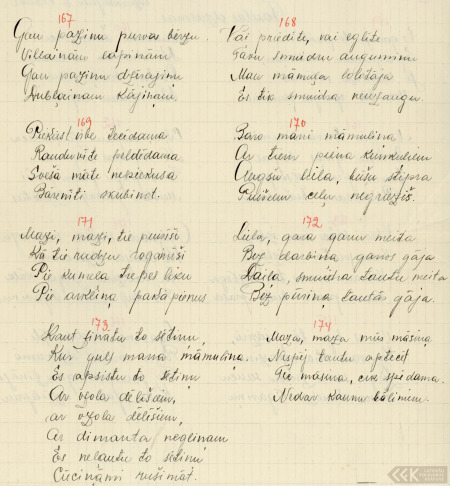 167
Gan pazinu purva bērzu
Villainām
Gan pazinu
Dublainām kājinām,
168
Vai priedīte, vai eglīte
Tāvu smuidru augumiņu
Man māmuļa
Es tik smuidra neuzaugu.
169
Piekūst irbe tecēdama
Raudavīte peldēdama
Sveša māte nepiekusa
Bārenīti skubinot.
170
Baro mani māmuliņa
Ar tiem piena kunkuliem
Augšu liela, būšu stipra
Puišiem ceļu negriezīš.
171
Mazi, mazi, tie puisīši
Kā tie rudzu rogainīši
Pie kumeļa trepes liku
Pie arkliņa pakāpienus
172
Liela, gara ganu meita
Bez darbiņa ganos gāja
Daiļa, smuidra tautu meita
Bez pūriņa tautās gāja.
173
Kaut zinātu to sētiņu,
Kur guļ mana māmuliņa.
Es apsistu to sētiņu
Ar ozola dēlīšiem,
ar ozola dēlīšiem,
Ar dimanta neglinām
Es nelautu to sētiņu
Cūciņāmi rušināt.
174
Maza, maza mūs māsiņa
Nespēj tautu apteceit
Tec māsiņa, cik spēdama.
Nedar kaunu bāliņiem.